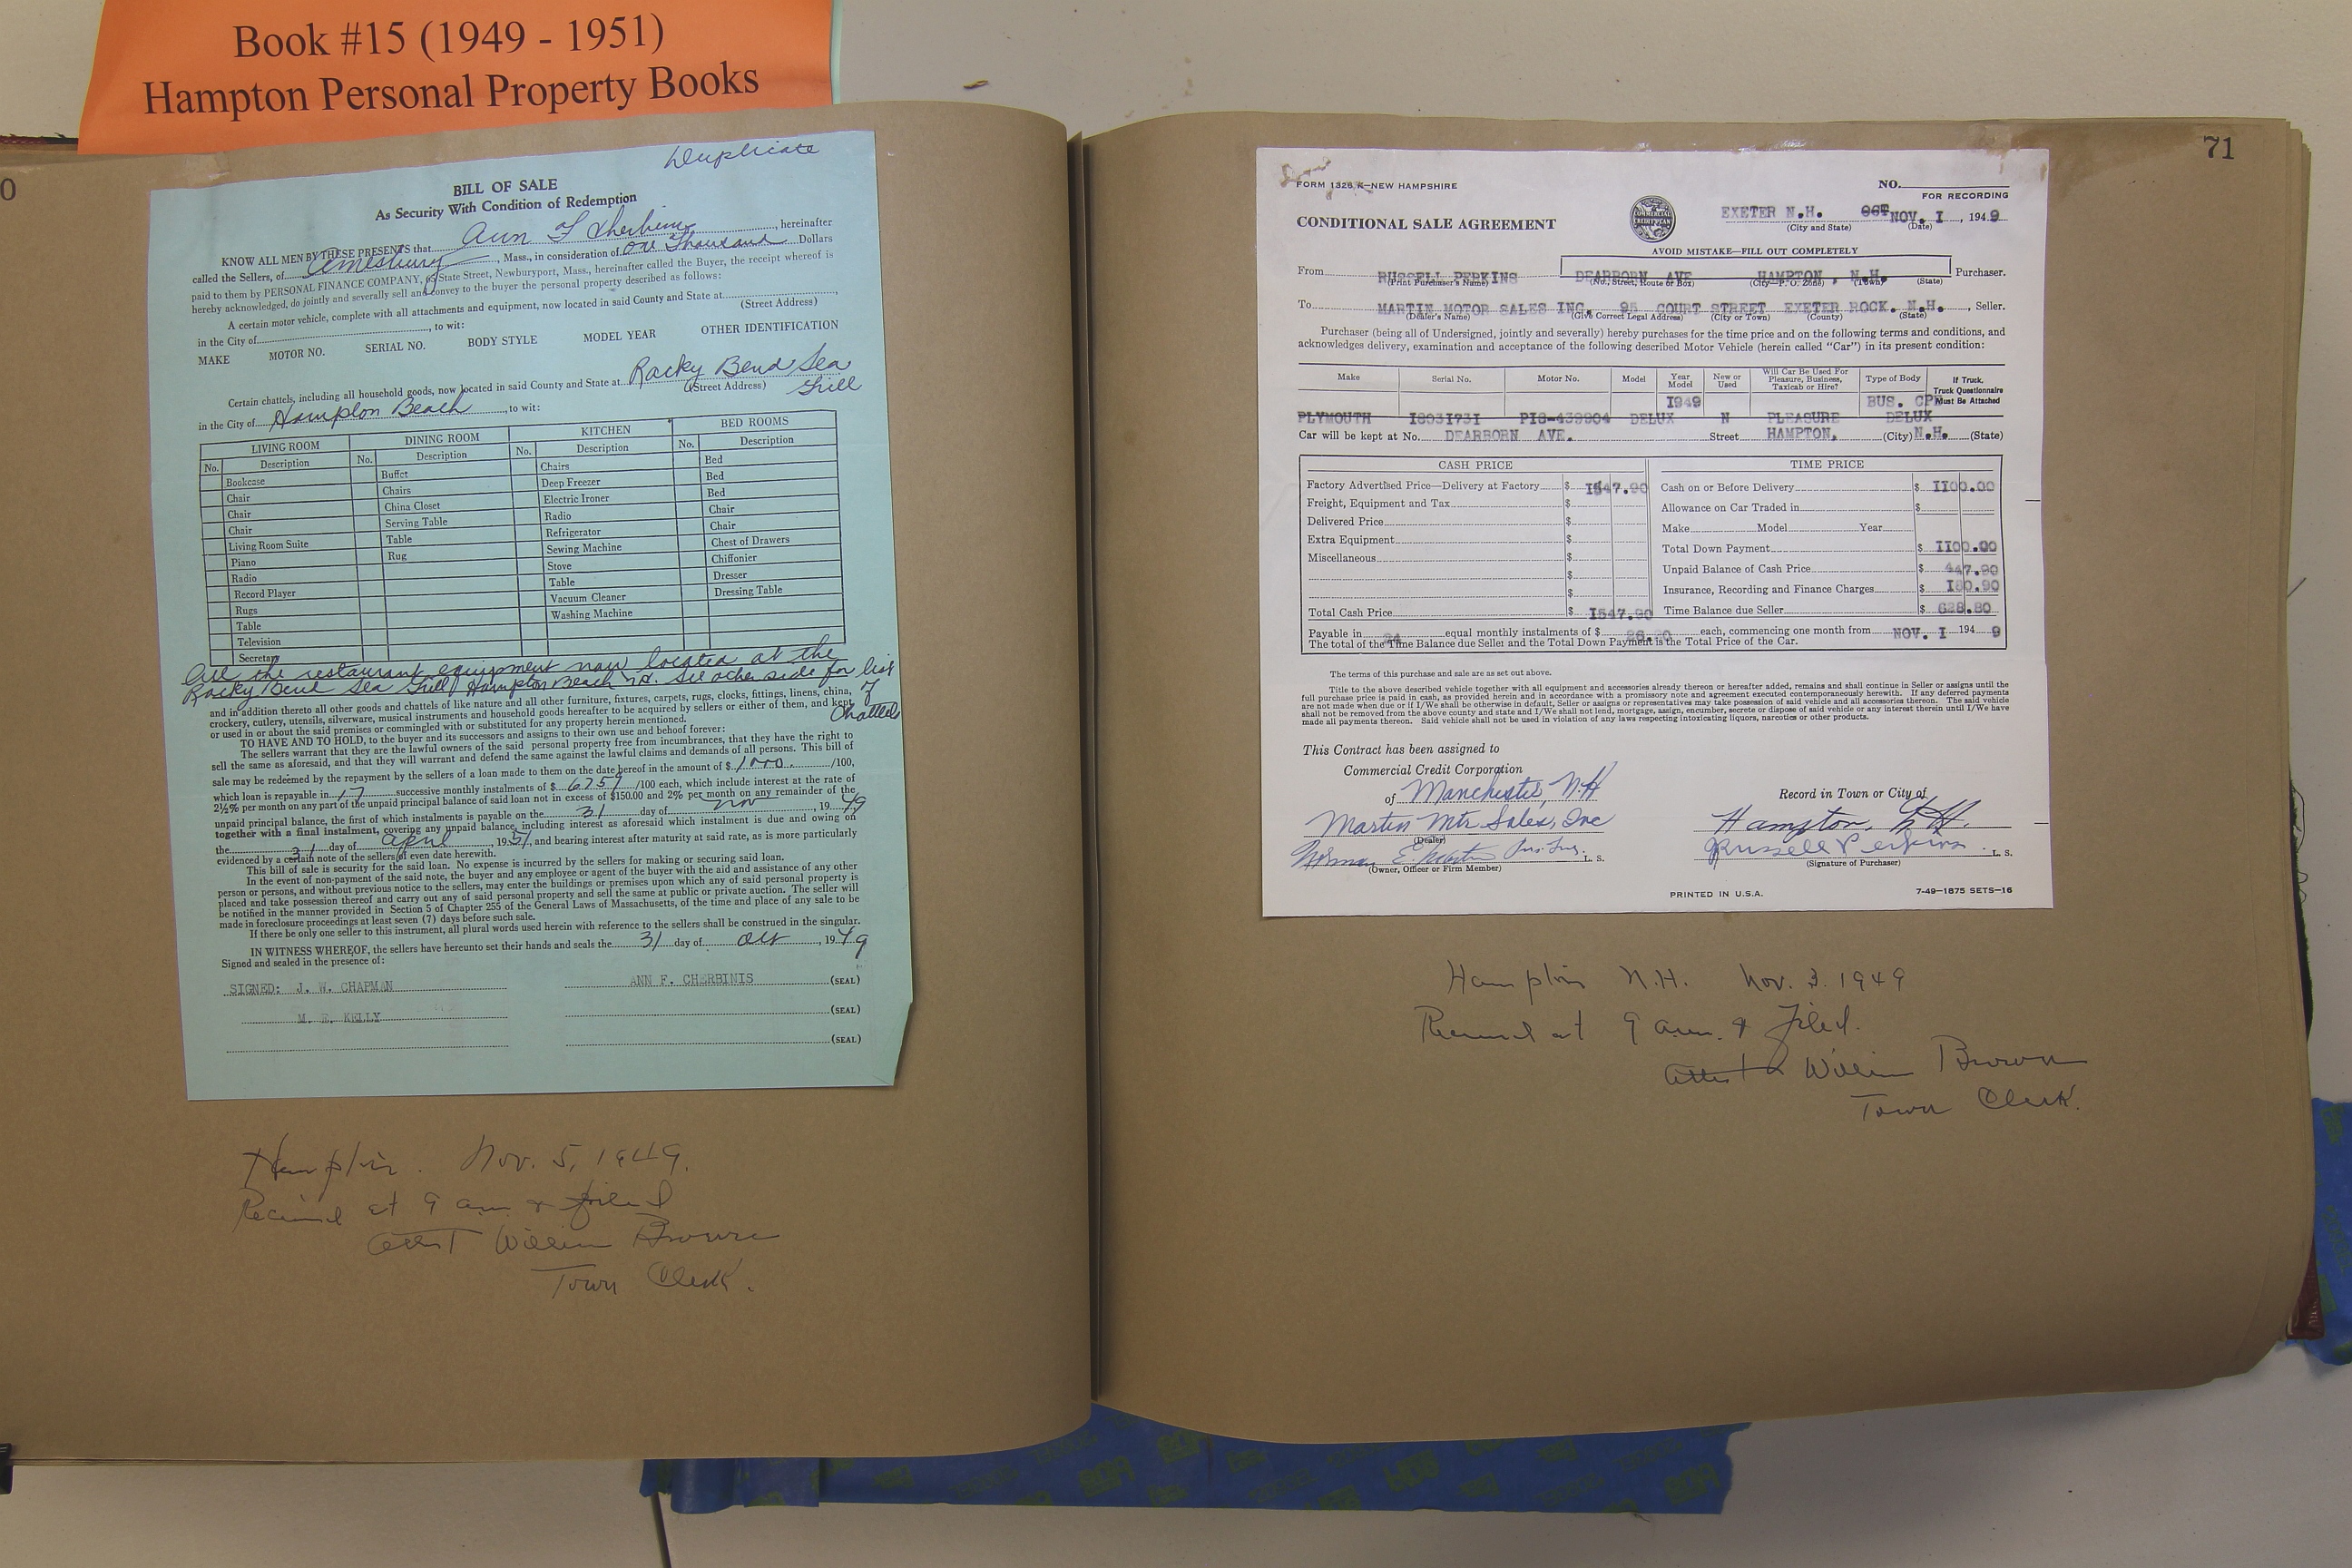 Book #15 (1949 - 1951)
Hampton Personal Property Books
0
Duplicate
BILL OF SALE
As Security With Condition of Redemption
KNOW ALL MEN BY THESE PRESENTS that Ann F Cherbinis, hereinafter
called the Sellers, of Amesbury, Mass., in consideration of One Thousand Dollars
paid to them by PERSONAL FINANCE COMPANY, of State Street, Newburyport, Mass., hereinafter called the Buyer, the receipt whereof is
hereby acknowledged, do jointly and severally sell and convey to the buyer the personal property described as follows:
A certain motor vehicle, complete with all attachments and equipment, now located in said County and State at
(Street Address)
in the City of, to wit:
MAKE MOTOR NO. SERIAL NO. BODY STYLE MODEL YEAR OTHER IDENTIFICATION
Certain chattels, including all household goods, now located in said County and State at Rocky Bend Sea
(Street Address) Grill
in the City of Hampton Beach, to wit:
LIVING ROOM DINING ROOM KITCHEN BED ROOMS
No. Description No. Description No. Description No. Description
Bookcase Buffet Chairs Bed
Chair Chairs Deep Freezer Bed
Chair China Closet Electric Ironer Bed
Chair Serving Table Radio Chair
Living Room Suite Table Refrigerator Chair
Piano Rug Sewing Machine Chest of Drawers
Radio Stove Chiffonier
Record Player Table Dresser
Rugs Vacuum Cleaner Dressing Table
Table Washing Machine
Television
Secretary
All the restaurant equipment now located at the
Rocky Bend Sea Grill Hampton Beach N.H. See other side for list
of
chattels
and in addition thereto all other goods and chattels of like nature and all other furniture, fixtures, carpets, rugs, clocks, fittings, linens, china,
crockery, cutlery, utensils, silverware, musical instruments and household goods hereafter to be acquired by sellers or either of them, and kept
or used in or about the said premises or commingled with or substituted for any property herein mentioned.
TO HAVE AND TO HOLD, to the buyer and its successors and assigns to their own use and behoof forever:
The sellers warrant that they are the lawful owners of the said personal property free from incumbrances, that they have the right to
sell the same as aforesaid, and that they will warrant and defend the same against the lawful claims and demands of all persons. This bill of
sale may be redeemed by the repayment by the sellers of a loan made to them on the date hereof in the amount of $ 1000. /100,
which loan is repayable in 17 successive monthly instalments of $ 6759 /100 each, which include interest at the rate of
2½% per month on any part of the unpaid principal balance of said loan not in excess of $150.00 and 2% per month on any remainder of the
unpaid principal balance, the first of which instalments is payable on the 31 day of Nov, 1949
together with a final instalment, covering any unpaid balance, including interest as aforesaid which instalment is due and owing on
the 31 day of April, 1951, and bearing interest after maturity at said rate, as is more particularly
evidenced by a certain note of the sellers of even date herewith.
This bill of sale is security for the said loan. No expense is incurred by the sellers for making or securing said loan.
In the event of non-payment of the said note, the buyer and any employee or agent of the buyer with the aid and assistance of any other
person or persons, and without previous notice to the sellers, may enter the buildings or premises upon which any of said personal property is
placed and take possession thereof and carry out any of said personal property and sell the same at public or private auction. The seller will
be notified in the manner provided in Section 5 of Chapter 255 of the General Laws of Massachusetts, of the time and place of any sale to be
made in foreclosure proceedings at least seven (7) days before such sale.
If there be only one seller to this instrument, all plural words used herein with reference to the sellers shall be construed in the singular.
IN WITNESS WHEREOF, the sellers have hereunto set their hands and seals the 31 day of Oct, 1949
Signed and sealed in the presence of:
SIGNED: J. W. CHAPMAN ANN F. CHERBINIS (SEAL)
M. E. KELLY (SEAL)
(SEAL)
Hampton. Nov. 5, 1949.
Received at 9 am & filed
Attest William Brown
Town Clerk.
71
FORM 1326 K—NEW HAMPSHIRE
NO.
FOR RECORDING
CONDITIONAL SALE AGREEMENT
COMMERCIAL CREDIT PLAN
EXETER N.H. OCT NOV. I, 1949
(City and State) (Date)
AVOID MISTAKE—FILL OUT COMPLETELY
From RUSSELL PERKINS DEARBORN AVE HAMPTON, N.H. Purchaser.
(Print Purchaser's Name) (No., Street, Route or Box) (City—P. O. Zone) (Town) (State)
To MARTIN MOTOR SALES INC. 95 COURT STREET EXETER ROCK. N.H., Seller.
(Dealer's Name) (Give Correct Legal Address) (City or Town) (County) (State)
Purchaser (being all of Undersigned, jointly and severally) hereby purchases for the time price and on the following terms and conditions, and
acknowledges delivery, examination and acceptance of the following described Motor Vehicle (herein called "Car") in its present condition:
Make Serial No. Motor No. Model Year Model New or Used Will Car Be Used For Pleasure, Business, Taxicab or Hire? Type of Body If Truck, Truck Questionnaire Must Be Attached
I949 BUS. CPE
PLYMOUTH I803I73I PI8-439804 DELUX N PLEASURE DELUX
Car will be kept at No. DEARBORN AVE. Street HAMPTON, (City) N.H. (State)
CASH PRICE TIME PRICE
Factory Advertised Price—Delivery at Factory $ I547.90 Cash on or Before Delivery $ II00.00
Freight, Equipment and Tax $ Allowance on Car Traded in $
Delivered Price $ Make Model Year
Extra Equipment $ Total Down Payment $ II00.00
Miscellaneous $ Unpaid Balance of Cash Price $ 447.90
$ Insurance, Recording and Finance Charges $ I80.90
$
Total Cash Price $ I547.90 Time Balance due Seller $ 628.80
Payable in 24 equal monthly instalments of $ 26.20 each, commencing one month from NOV. I 1949
The total of the Time Balance due Seller and the Total Down Payment is the Total Price of the Car.
The terms of this purchase and sale are as set out above.
Title to the above described vehicle together with all equipment and accessories already thereon or hereafter added, remains and shall continue in Seller or assigns until the
full purchase price is paid in cash, as provided herein and in accordance with a promissory note and agreement executed contemporaneously herewith. If any deferred payments
are not made when due or if I/We shall be otherwise in default, Seller or assigns or representatives may take possession of said vehicle and all accessories thereon. The said vehicle
shall not be removed from the above county and state and I/We shall not lend, mortgage, assign, encumber, secrete or dispose of said vehicle or any interest therein until I/We have
made all payments thereon. Said vehicle shall not be used in violation of any laws respecting intoxicating liquors, narcotics or other products.
This Contract has been assigned to
Commercial Credit Corporation
of Manchester, N.H
Record in Town or City of
Martin Mtr Sales, Inc Hampton, N.H.
(Dealer)
Norman E. Martin L. S. Russell Perkins L. S.
(Owner, Officer or Firm Member) (Signature of Purchaser)
PRINTED IN U.S.A. 7-49—1875 SETS—16
Hampton N.H. Nov. 3. 1949
Received at 9 am. & filed.
Attest William Brown
Town Clerk.